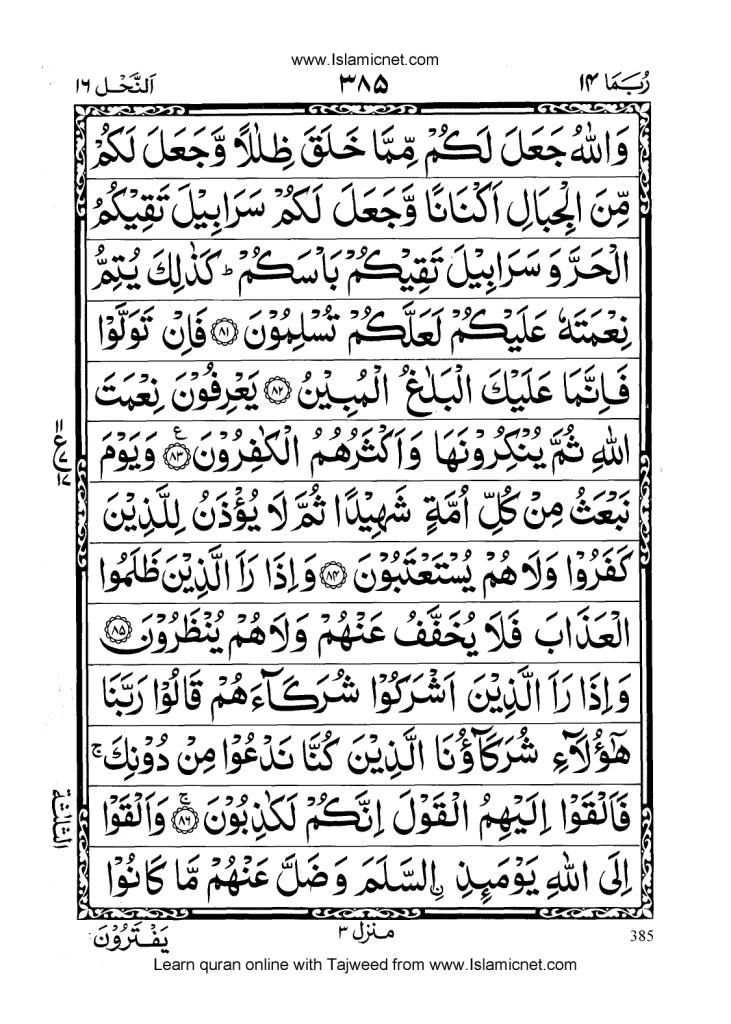 www.Islamicnet.com
رُبَمَا ١٤
٣٨٥
اَلنَّحْل ١٦
وَاللّٰهُ جَعَلَ لَكُمْ مِّمَّا خَلَقَ ظِلٰلًا وَّجَعَلَ لَكُمْ
مِّنَ الْجِبَالِ اَكْنَانًا وَّجَعَلَ لَكُمْ سَرَابِيْلَ تَقِيْكُمُ
الْحَرَّ وَ سَرَابِيْلَ تَقِيْكُمْ بَاْسَكُمْ ؕ كَذٰلِكَ يُتِمُّ
نِعْمَتَهٗ عَلَيْكُمْ لَعَلَّكُمْ تُسْلِمُوْنَ ﴿٨١﴾ فَاِنْ تَوَلَّوْا
فَاِنَّمَا عَلَيْكَ الْبَلٰغُ الْمُبِيْنُ ﴿٨٢﴾ يَعْرِفُوْنَ نِعْمَتَ
اللّٰهِ ثُمَّ يُنْكِرُوْنَهَا وَاَكْثَرُهُمُ الْكٰفِرُوْنَ ﴿٨٣﴾ ع وَيَوْمَ
نَبْعَثُ مِنْ كُلِّ اُمَّةٍ شَهِيْدًا ثُمَّ لَا يُؤْذَنُ لِلَّذِيْنَ
كَفَرُوْا وَلَا هُمْ يُسْتَعْتَبُوْنَ ﴿٨٤﴾ وَاِذَا رَاَ الَّذِيْنَ ظَلَمُوا
الْعَذَابَ فَلَا يُخَفَّفُ عَنْهُمْ وَلَا هُمْ يُنْظَرُوْنَ ﴿٨٥﴾
وَاِذَا رَاَ الَّذِيْنَ اَشْرَكُوْا شُرَكَآءَهُمْ قَالُوْا رَبَّنَا
هٰٓؤُلَآءِ شُرَكَآؤُنَا الَّذِيْنَ كُنَّا نَدْعُوْا مِنْ دُوْنِكَ ۚ
فَاَلْقَوْا اِلَيْهِمُ الْقَوْلَ اِنَّكُمْ لَكٰذِبُوْنَ ﴿٨٦﴾ ۚ وَاَلْقَوْا
اِلَى اللّٰهِ يَوْمَئِذِ اۨلسَّلَمَ وَضَلَّ عَنْهُمْ مَّا كَانُوْا
الثلثة
يَفْتَرُوْنَ
منزل ٣
385
Learn quran online with Tajweed from www.Islamicnet.com